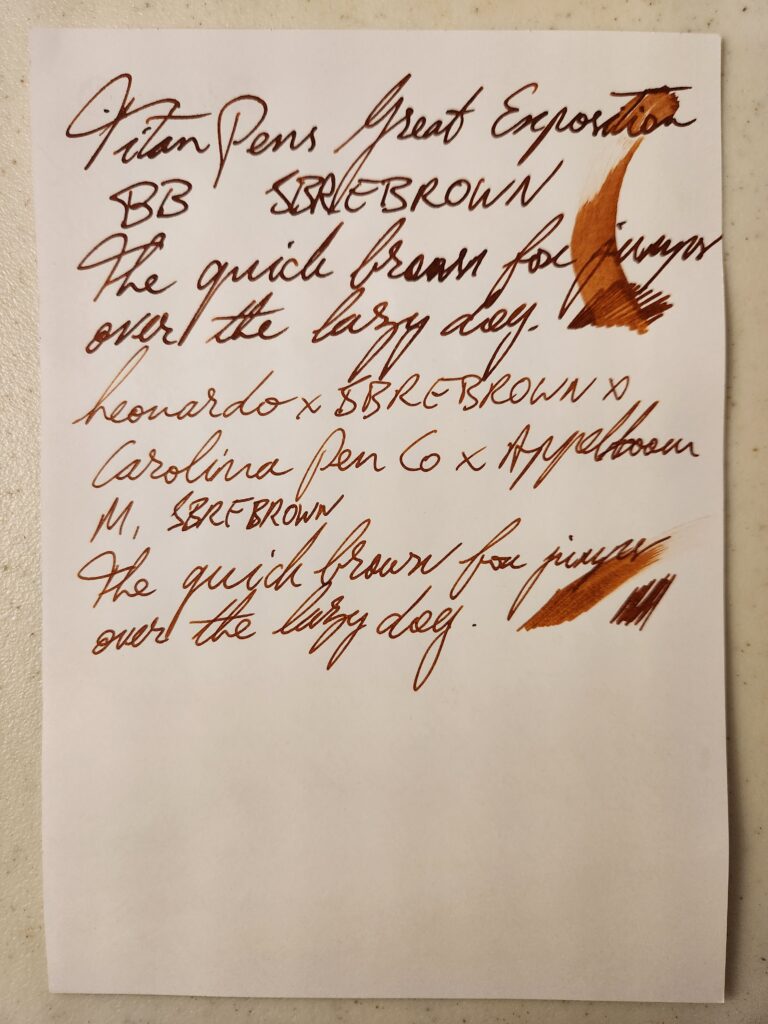 Titan Pens Great Exposition
BB SBREBROWN
The quick brown fox jumps
over the lazy dog.
Leonardo x SBREBROWN x
Carolina Pen Co x Appelboom
M, SBREBROWN
The quick brown fox jumps
over the lazy dog.